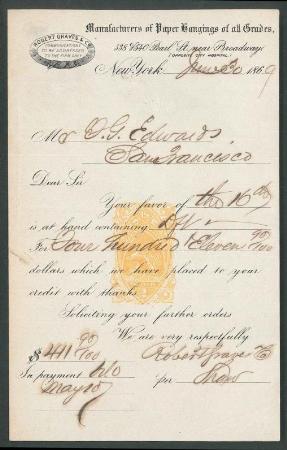 ROBERT GRAVES & CO.
COMMUNICATIONS
TO BE ADDRESSED
TO THE FIRM ONLY
Manufacturers of Paper Hangings of all Grades,
538 & 540 Pearl St. near Broadway
(OPPOSITE CITY HOSPITAL)
New York June 30 1869
Mr G. G. Edwards,
San Francisco
Dear Sir
Your favor of the 16th
is at hand containing Dft
For Four hundred Eleven 90/100
dollars which we have placed to your
credit with thanks.
Soliciting your further orders
We are very respectfully
$ 411 90/100 Robert Graves & Co
In payment
May 10 per Shaw